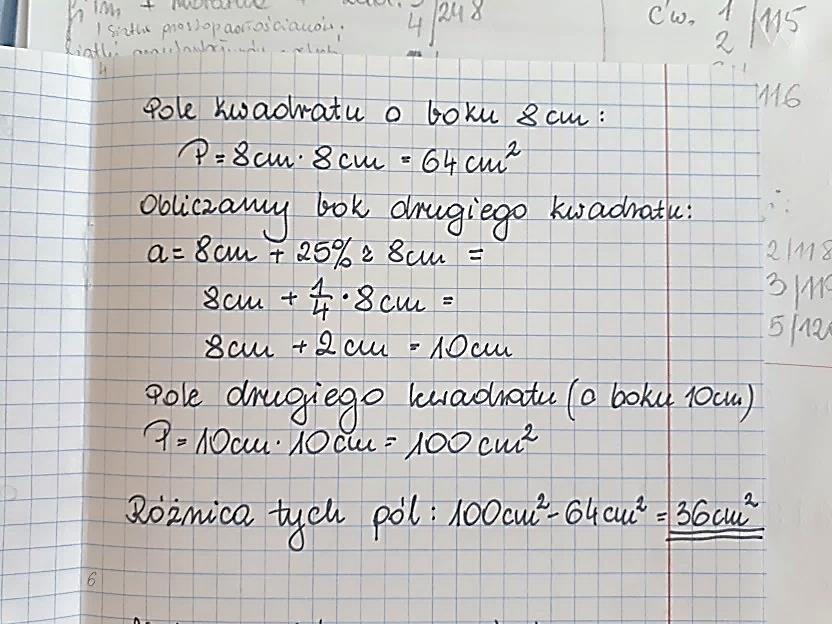 4/248
ćw. 1/115
2
siatki prostopadłościanów;
116
Pole kwadratu o boku 8cm:
P=8cm·8cm=64cm²
Obliczamy bok drugiego kwadratu:
a=8cm+25% z 8cm =
8cm + 1/4 · 8cm =
8cm + 2cm = 10cm
Pole drugiego kwadratu (o boku 10cm)
P=10cm·10cm=100cm²
Różnica tych pól: 100cm²-64cm²=36cm²
2/118
3/119
5/120
6